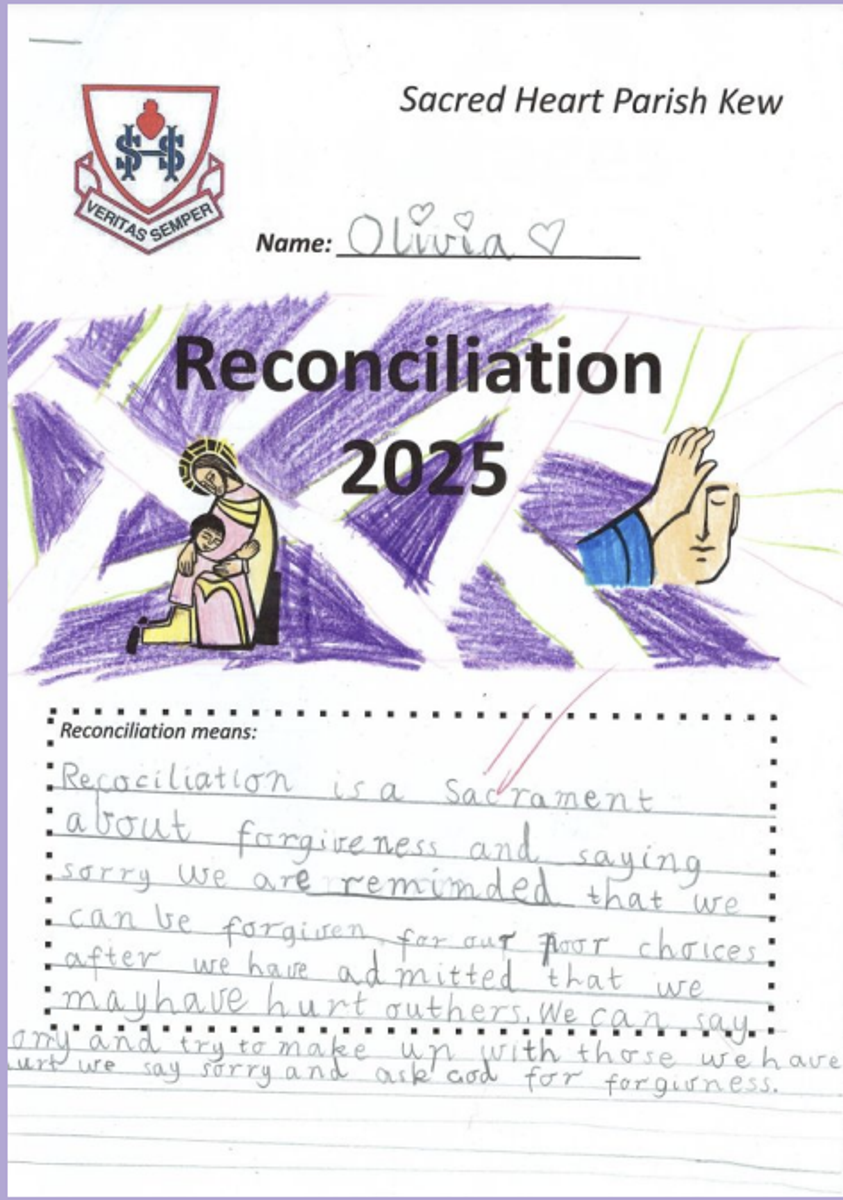 Sacred Heart Parish Kew
SHS
VERITAS SEMPER
Name: Olivia
Reconciliation
2025
Reconciliation means:
Recociliation is a Sacrament
about forgiveness and saying
sorry we are remimded that we
can be forgiven for our poor choices
after we have admitted that we
mayhave hurt outhers. We can say
orry and try to make up with those we have
urt we say sorry and ask God for forgivness.